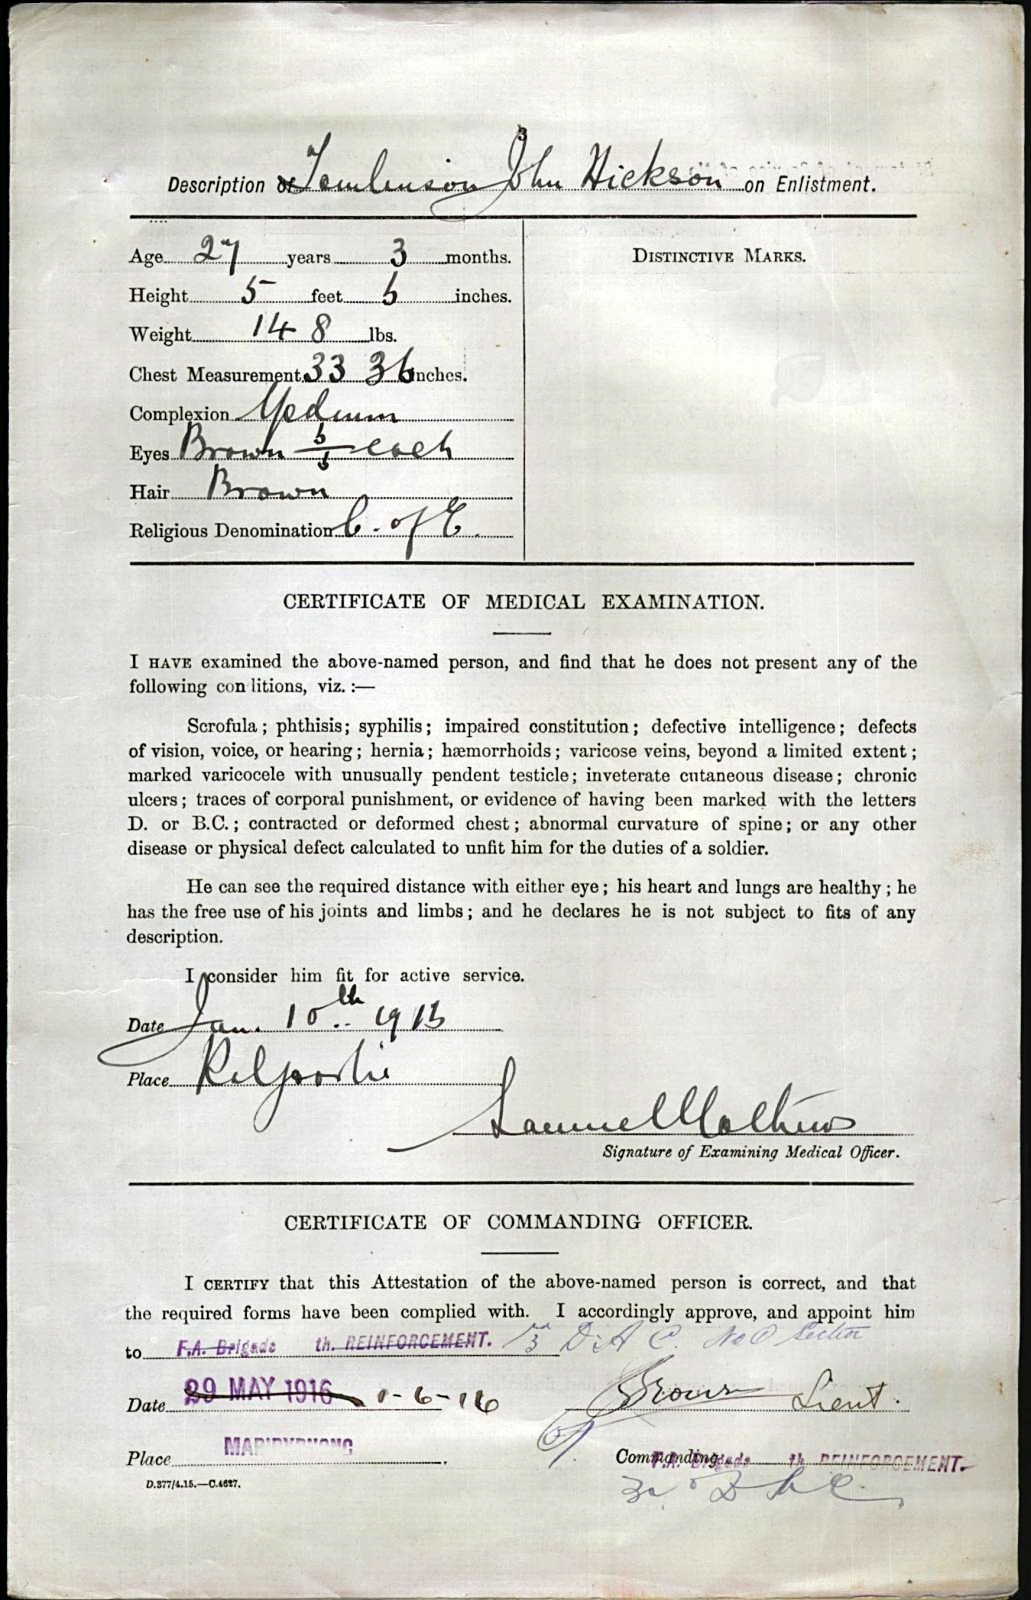 Description of Tomlinson John Hickson on Enlistment.
Age 27 years 3 months.
Height 5 feet 6 inches.
Weight 148 lbs.
Chest Measurement 33 36 inches.
Complexion Medium
Eyes Brown 6/6 each
Hair Brown
Religious Denomination C. of E.
DISTINCTIVE MARKS.
CERTIFICATE OF MEDICAL EXAMINATION.
I HAVE examined the above-named person, and find that he does not present any of the
following conditions, viz. :—
Scrofula ; phthisis ; syphilis ; impaired constitution ; defective intelligence ; defects
of vision, voice, or hearing ; hernia ; hæmorrhoids ; varicose veins, beyond a limited extent ;
marked varicocele with unusually pendent testicle ; inveterate cutaneous disease ; chronic
ulcers ; traces of corporal punishment, or evidence of having been marked with the letters
D. or B.C. ; contracted or deformed chest ; abnormal curvature of spine ; or any other
disease or physical defect calculated to unfit him for the duties of a soldier.
He can see the required distance with either eye ; his heart and lungs are healthy ; he
has the free use of his joints and limbs ; and he declares he is not subject to fits of any
description.
I consider him fit for active service.
Date Jan. 10th 1916
Place Kalgoorlie
Samuel Mathews
Signature of Examining Medical Officer.
CERTIFICATE OF COMMANDING OFFICER.
I CERTIFY that this Attestation of the above-named person is correct, and that
the required forms have been complied with. I accordingly approve, and appoint him
to F.A. Brigade th. REINFORCEMENT. 3rd D.A.C. No 0 Section
Date 29 MAY 1916 1-6-16 Lieut.
Place MARIBYRNONG
Commanding F.A. Brigade th REINFORCEMENT.
3rd D A C
D.377/4.15.—C.4627.